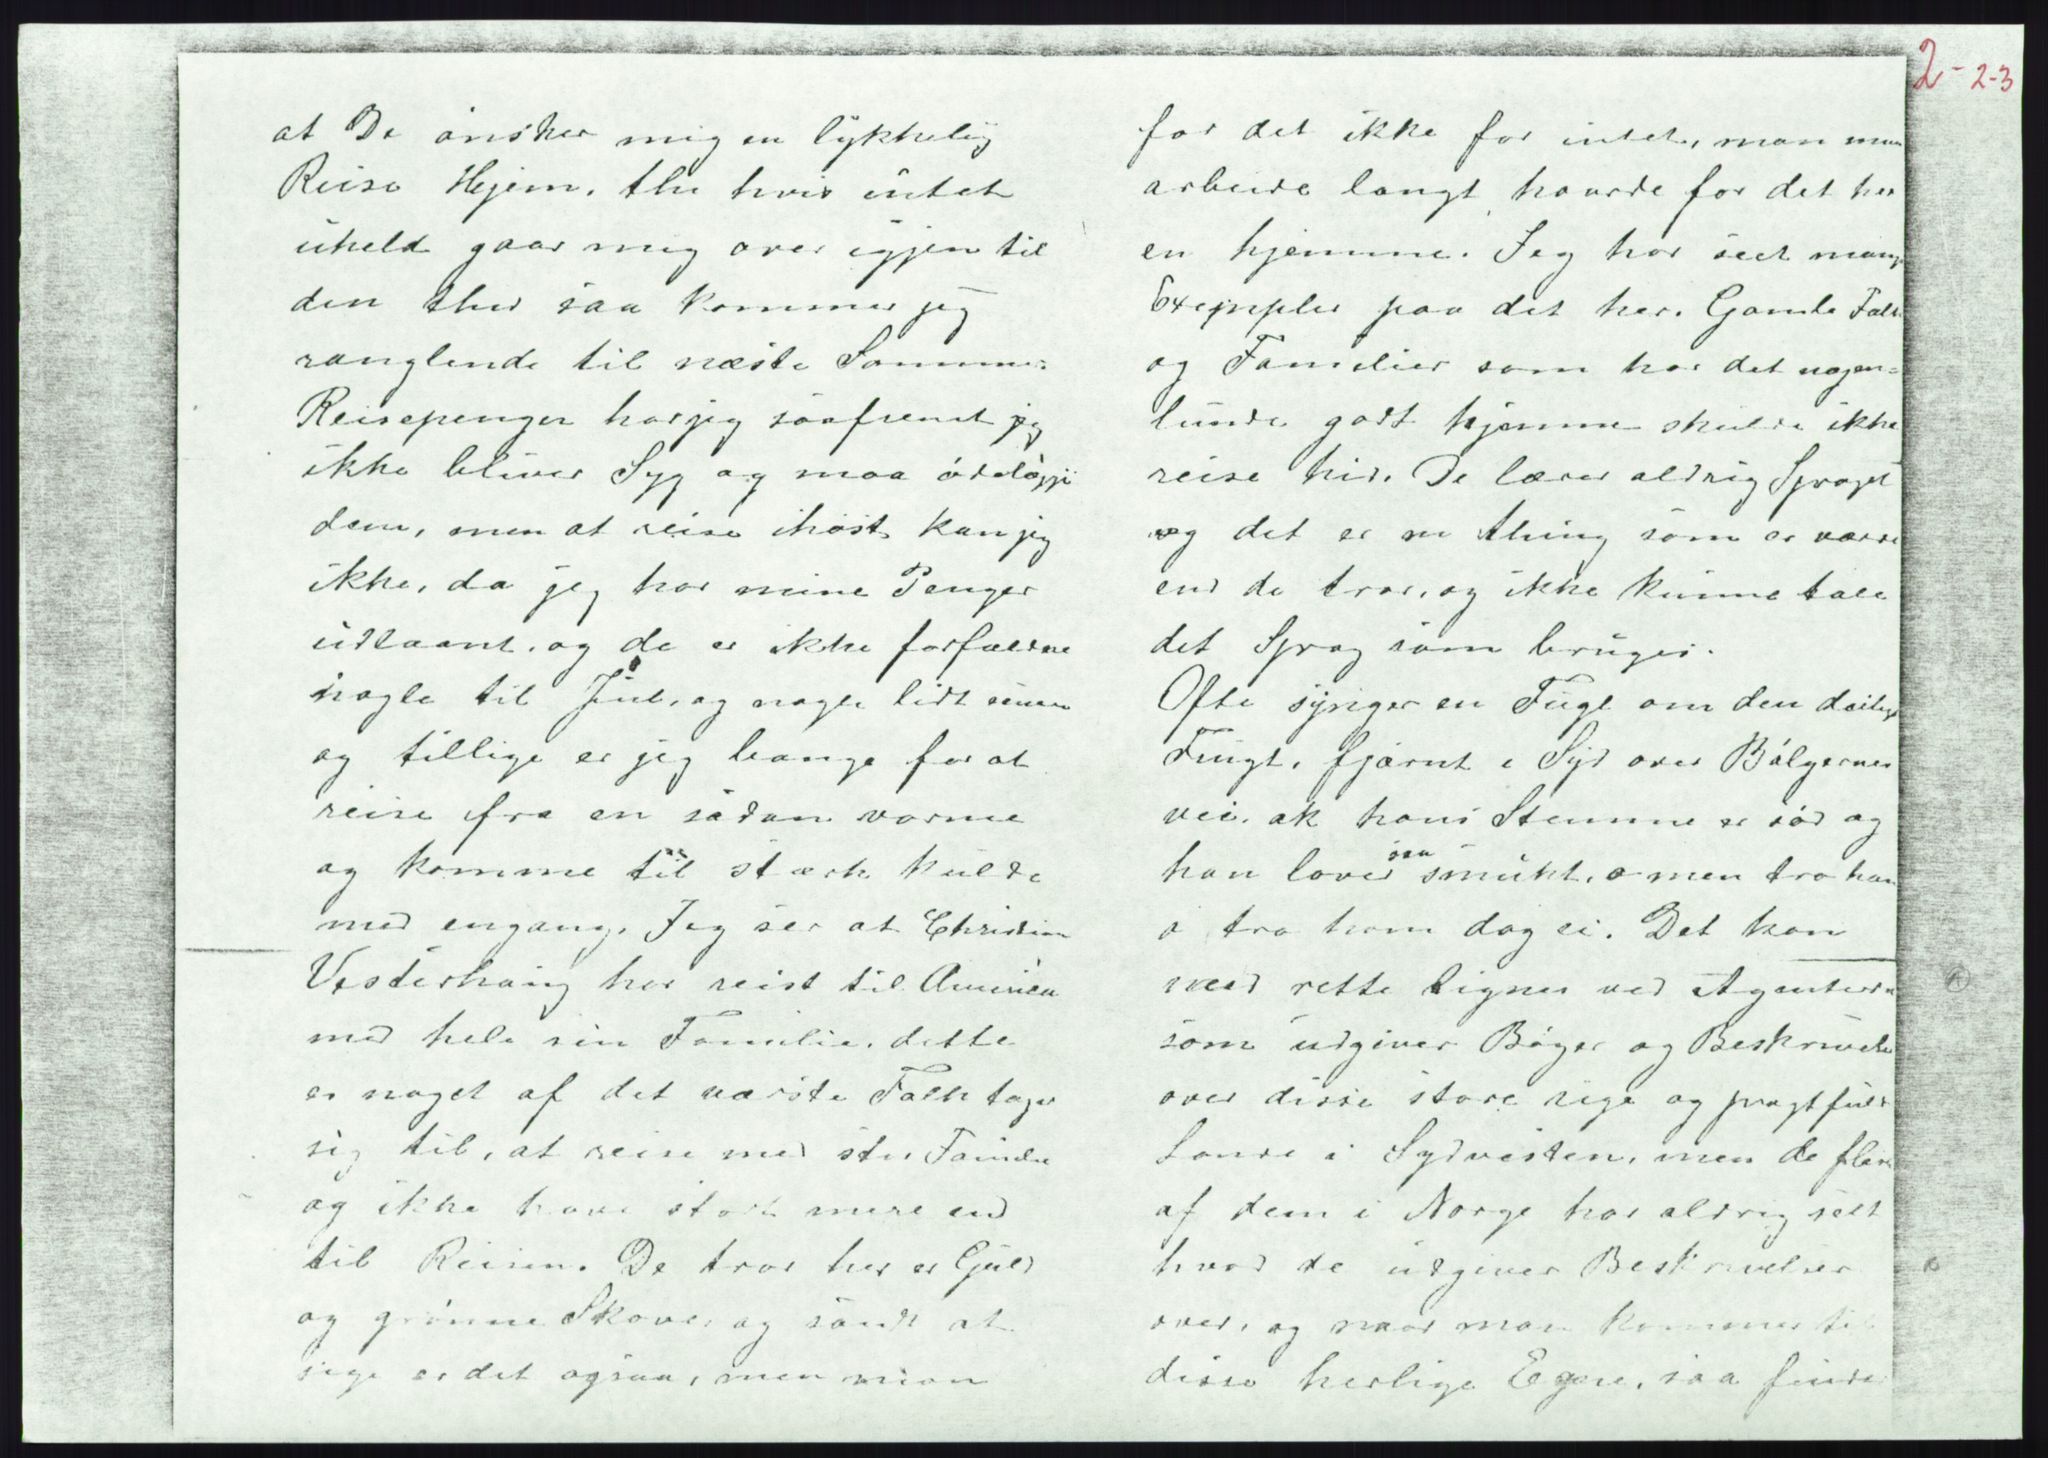 2- 2-3
at De ønsker mig en lykkelig
Reise Hjem, thi hvis intet
uheld gaar mig over igjen til
den ther saa kommer jeg
ranglende til næste Sommer.
Reisepenger har jeg saafremt jeg
ikke bliver Syg og maa ødelægge
dem, men at reise ihøst kan jeg
ikke, da jeg har mine Penger
udlaant, og de er ikke forfældne
nogle til Jul, og nogle lidt senere
og tillige er jeg bange for at
reise fra en sådan varme
og komme til stærk kulde
med engang. Jeg ser at Christian
Vesterhaug har reist til America
med hele sin Familie, dette
er noget af det værste Folk tager
sig til, at reise med stor Familie
og ikke have stort mere end
til Reisen. De tror her er Guld
og grønne Skove, og sandt at
sige er det ogsaa, men man
faar det ikke for intet, man maa
arbeide langt haarde for det her
en hjemme. Jeg har seet mange
Exempler paa det her. Gamle Folk
og Familier som har det nogen=
lunde godt hjemme skulde ikke
reise hid. De lærer aldrig Sproget
og det er en thing som er værre
end de tror, og ikke kunne tale
det Sprog som bruges.
Ofte synger en Fugl om den deilige
Frugt, fjærnt i Syd over Bølgernes
vei, ak hans Stemme er sød og
han lover saa smukt, o men tro ham
o tro ham dog ei. Det kan
med rette lignes ved Agenterne
som udgiver Bøger og Beskrivelse
over disse store rige og pragtfulde
Lande i Sydvesten, men de fleste
af dem i Norge har aldrig seet
hvad de udgiver Beskrivelser
over, og naar man kommer til
disse herlige Egne, saa finder